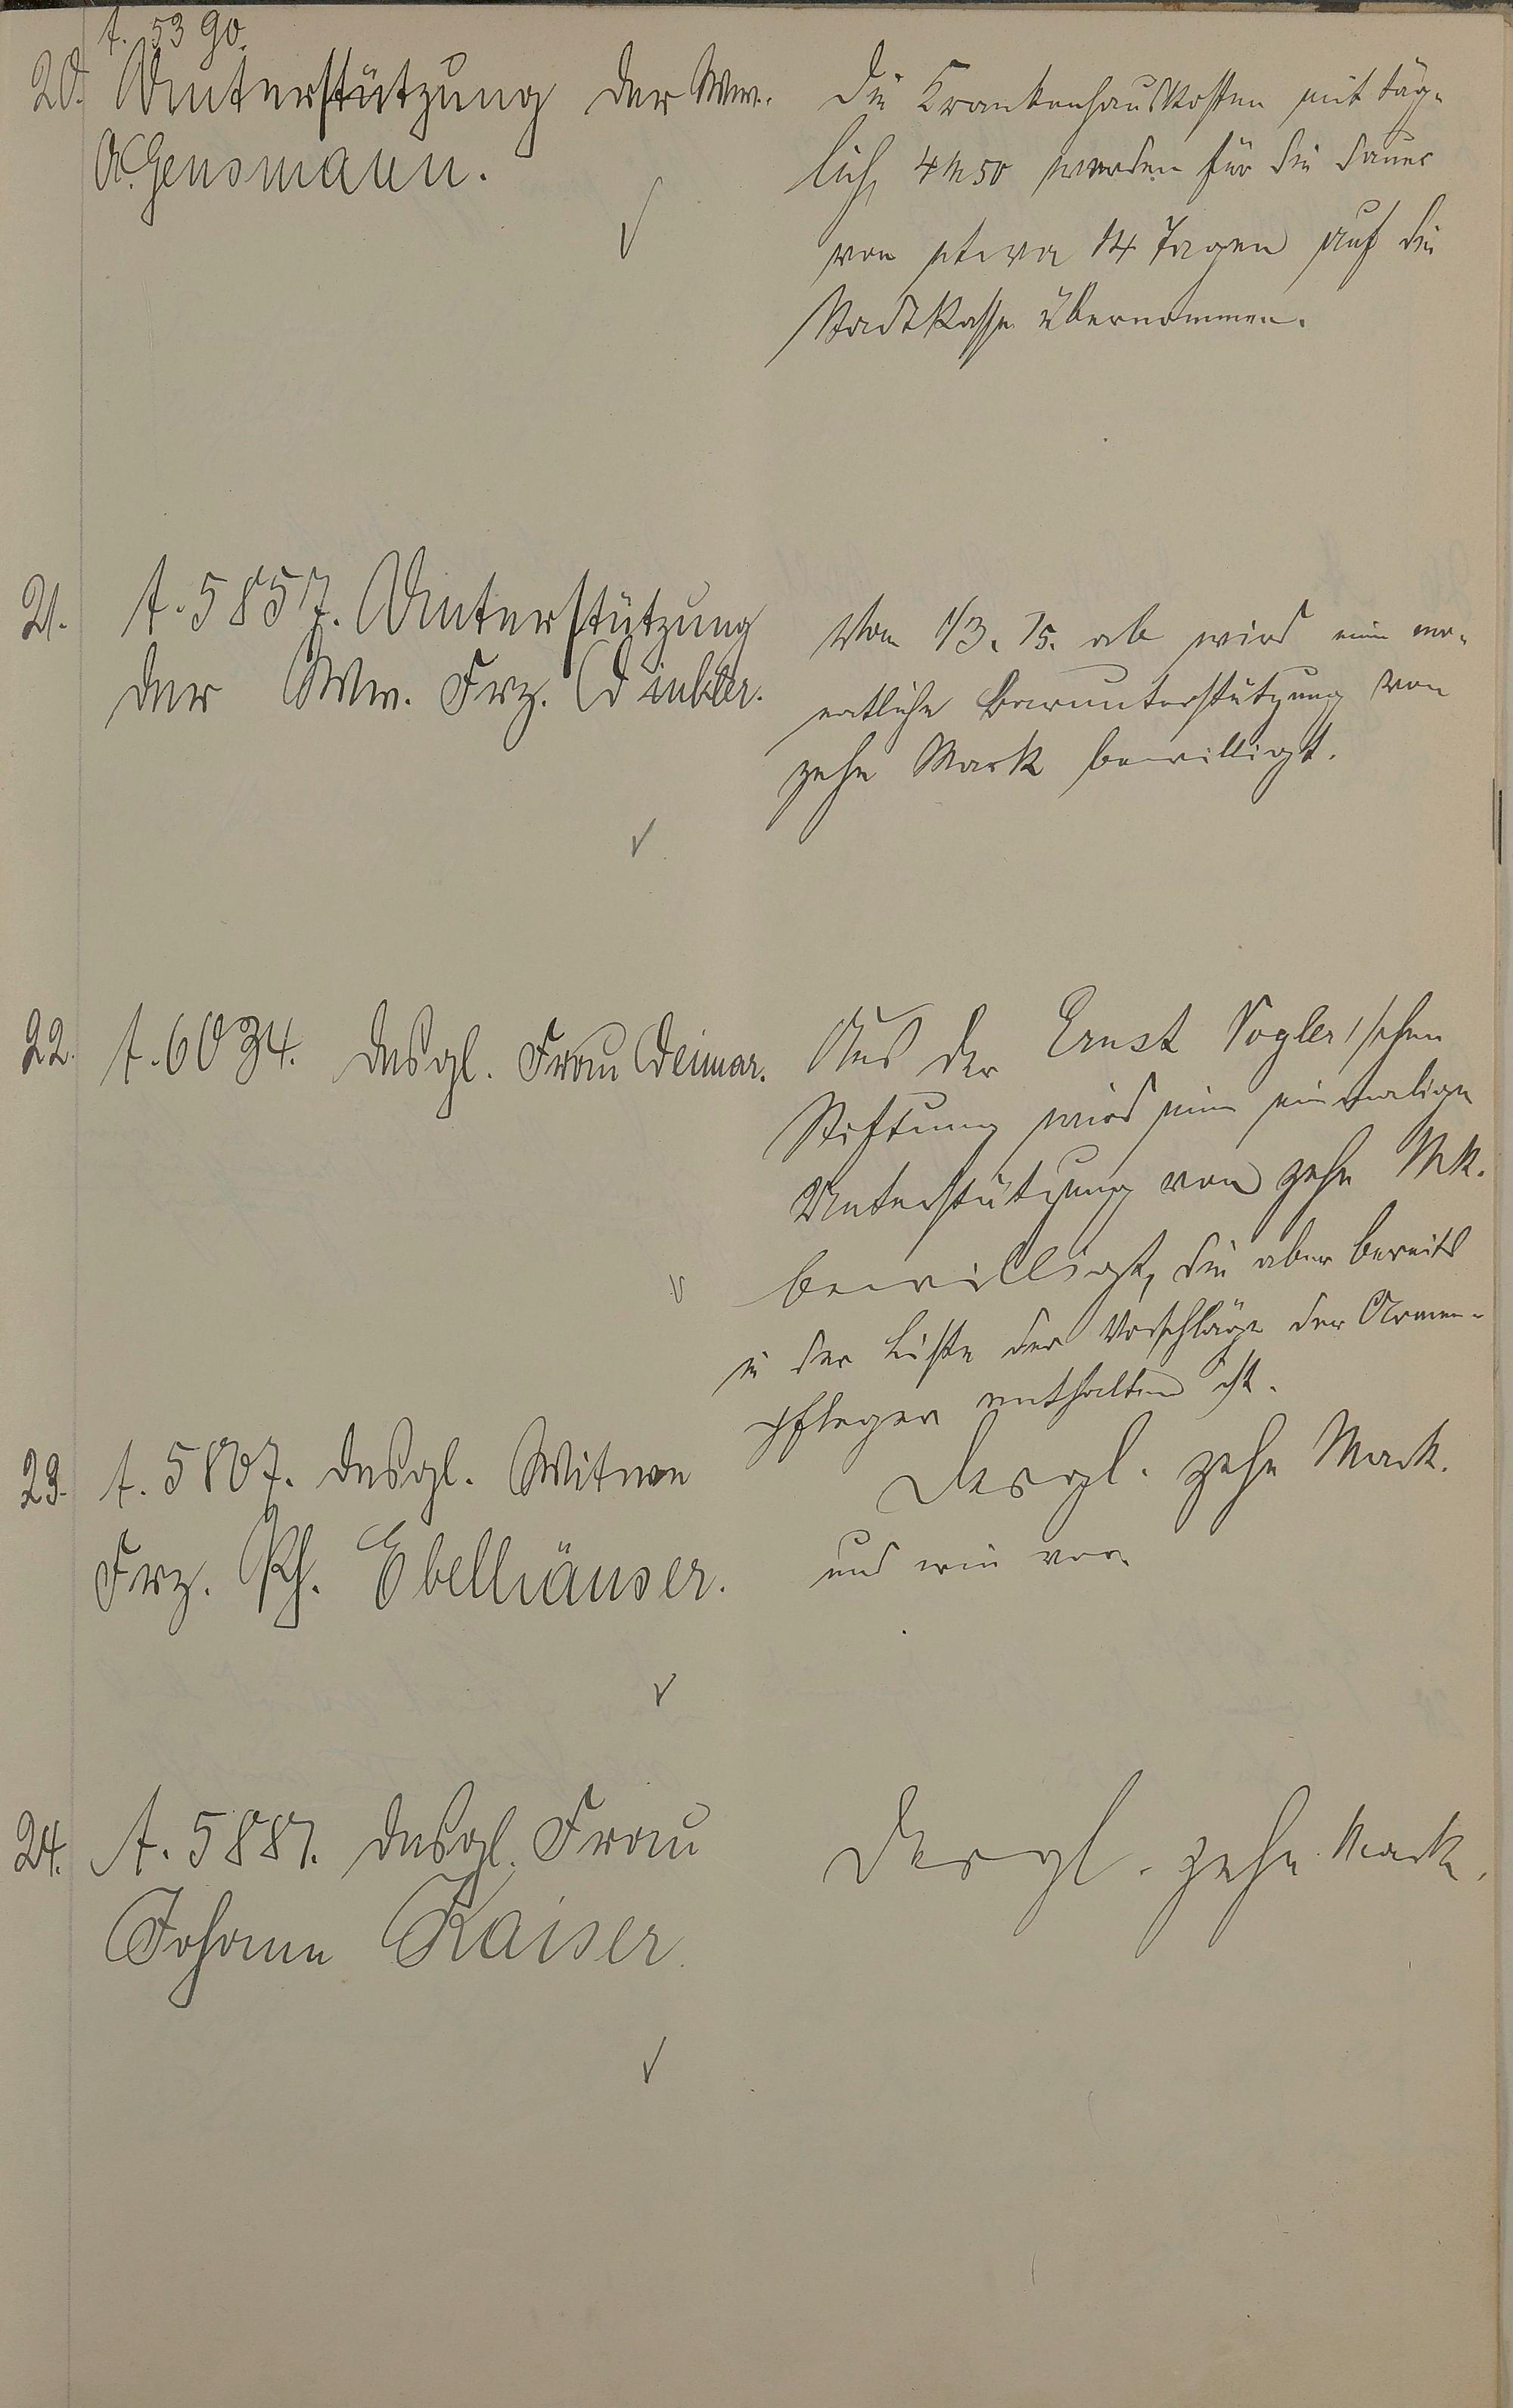 A. 5390.
20. Unterstützung der Ww.
A. Gensmann.
Die Krankenhauskosten mit täg-
lich 4 M 50 werden für die Dauer
von etwa 14 Tagen auf die
Stadtkasse übernommen.
21. A. 5857. Unterstützung
der Ww. Frz. Dinkler.
Vom 1/3. 15. ab wird eine mo-
natliche Barunterstützung von
zehn Mark bewilligt.
22. A. 6034. Desgl. Frau Deimar.
Aus der Ernst Vogler'schen
Stiftung wird eine einmalige
Unterstützung von zehn Mk.
bewilligt, die aber bereits
in der Liste der Vorschläge der Armen-
pfleger enthalten ist.
23. A. 5807. Desgl. Witwe
Frz. Ph. Ebelhäuser.
Desgl. zehn Mark.
und wie vor.
24. A. 5887. Desgl. Frau
Johann Kaiser.
Desgl. zehn Mark.